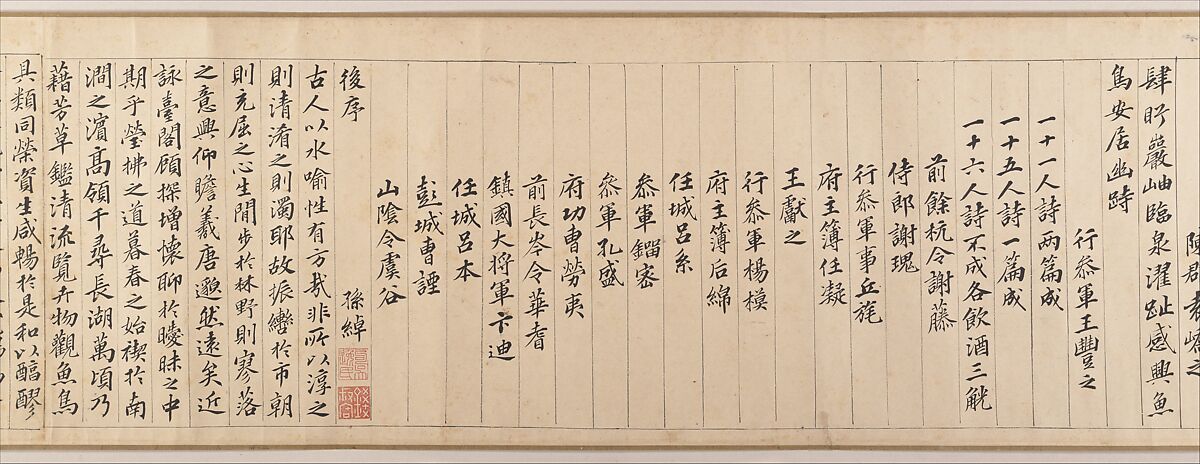 陳郡袁嶠之
肆盻巖岫臨泉濯趾感興魚
鳥安居幽跱
行叅軍王豐之
一十一人詩两篇成
一十五人詩一篇成
一十六人詩不成各飲酒三觥
前餘杭令謝藤
侍郎謝瑰
行叅軍事丘旄
府主簿任凝
王獻之
行叅軍楊模
府主簿后綿
任城呂系
叅軍劉密
叅軍孔盛
府功曹勞夷
前長岑令華耆
鎮國大将軍卞迪
任城呂本
彭城曹諲
山陰令虞谷
後序 孫綽
古人以水喻性有方㢤非所以淳之
則清淆之則濁耶故振轡於市朝
則充屈之心生閒步於林野則寥落
之意興仰瞻羲唐邈然遠矣近
詠臺閣顧探增懷聊於曖昧之中
期乎瑩拂之道暮春之始禊於南
澗之濱髙領千尋長湖萬頃乃
藉芳草鑑清流覽卉物觀魚鳥
具類同榮資生咸暢於是和以醑醪